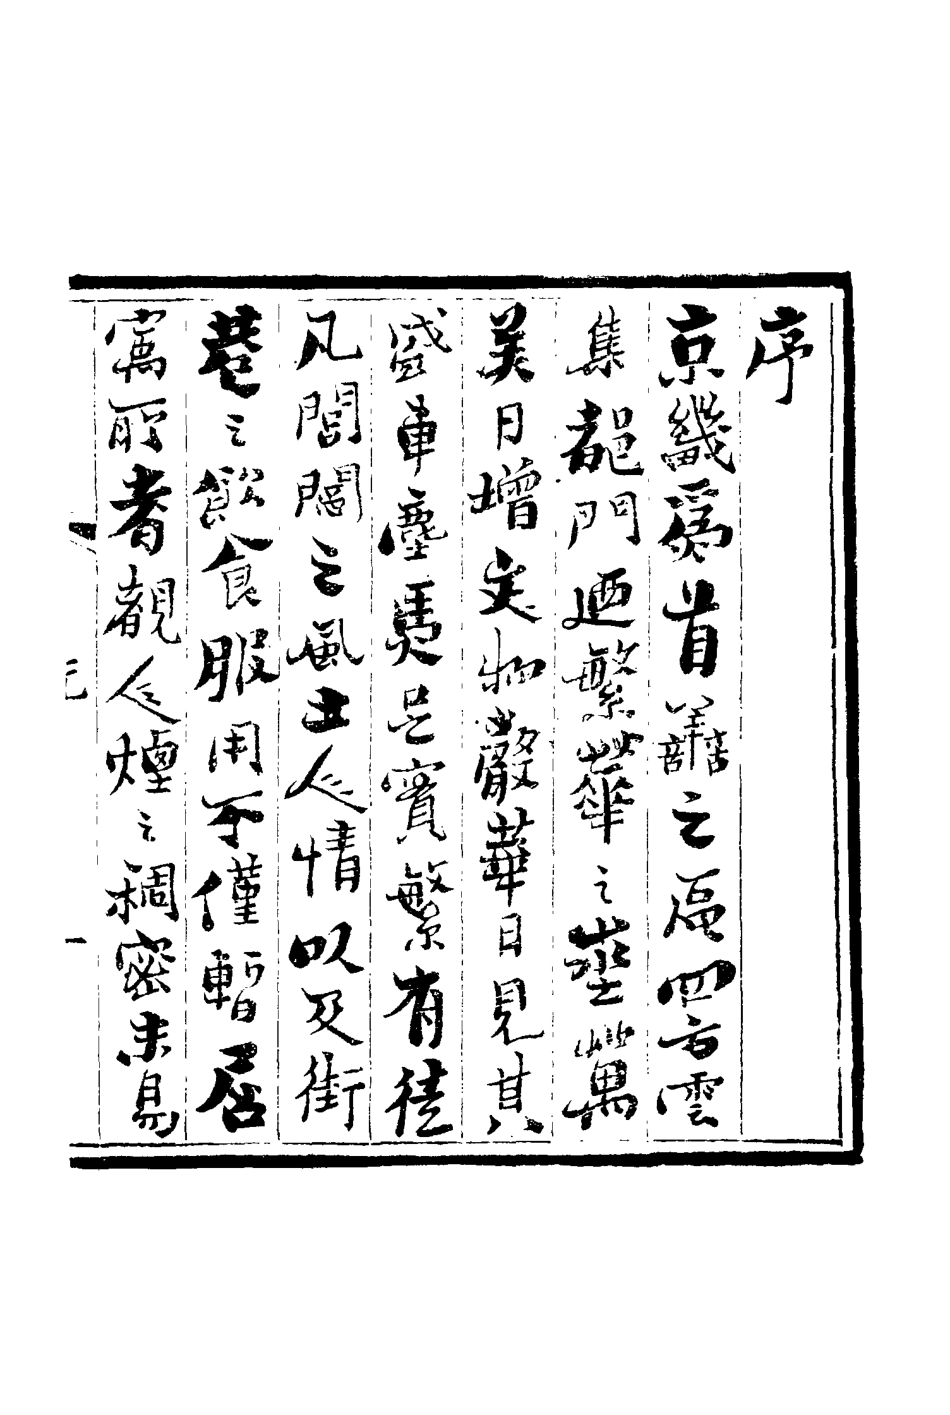 序
京畿爲首善之區四方雲
集都門迺繁華之塟萬
美日增文物聲華日見其
盛車塵馬足實繁有徒
凡閭閻之風土人情以及街
巷之飲食服用不僅暫居
寓所者觀人煙之稠密未易